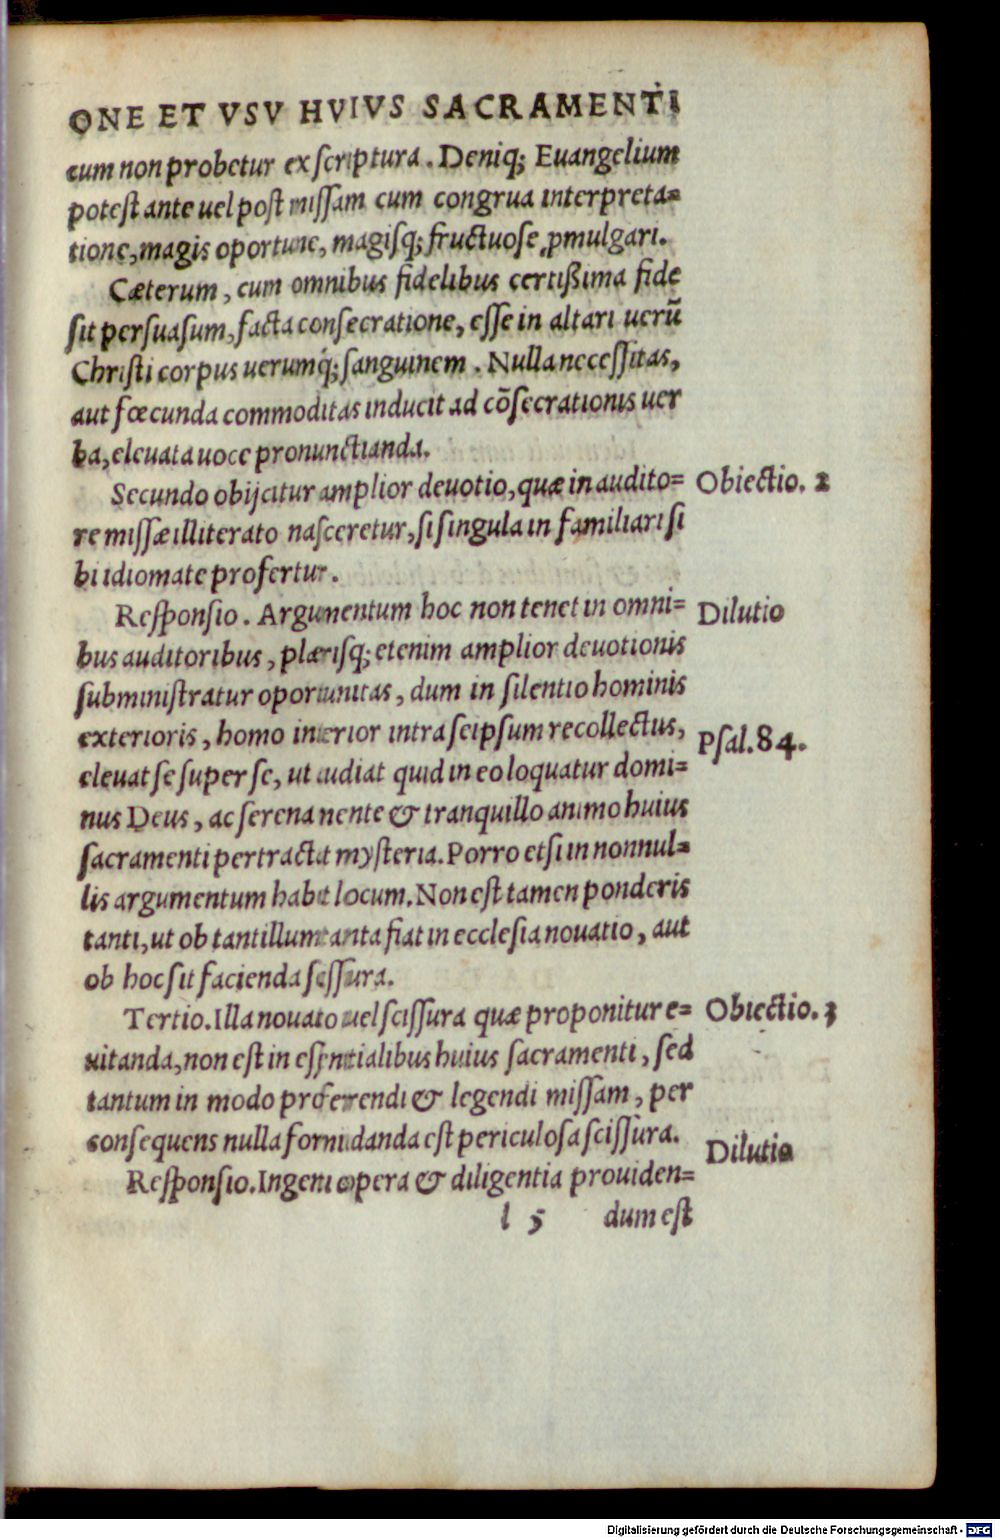 ONE ET VSV HVIVS SACRAMENTI
cum non probetur ex scriptura. Deniq; Euangelium
potest ante uel post missam cum congrua interpreta=
tione, magis oportune, magisq; fructuose ꝓmulgari.
Cæterum, cum omnibus fidelibus certißima fide
sit persuasum, facta consecratione, esse in altari uerũ
Christi corpus uerumq́; sanguinem. Nulla necessitas,
aut fœcunda commoditas inducit ad cõsecrationis uer
ba, eleuata uoce pronunctianda.
Secundo obijcitur amplior deuotio, quæ in audito=
re missæ illiterato nasceretur, si singula in familiari si
bi idiomate profertur.
Obiectio. 2
Responsio. Argumentum hoc non tenet in omni=
bus auditoribus, plærisq; etenim amplior deuotionis
subministratur oportunitas, dum in silentio hominis
exterioris, homo interior intra seipsum recollectus,
eleuat se super se, ut audiat quid in eo loquatur domi=
nus Deus, ac serena mente & tranquillo animo huius
sacramenti pertractat mysteria. Porro etsi in nonnul=
lis argumentum habet locum. Non est tamen ponderis
tanti, ut ob tantillum tanta fiat in ecclesia nouatio, aut
ob hoc sit facienda scissura.
Dilutio
Psal. 84.
Tertio. Illa nouatio uel scissura quæ proponitur e=
uitanda, non est in essentialibus huius sacramenti, sed
tantum in modo proferendi & legendi missam, per
consequens nulla formidanda est periculosa scissura.
Obiectio. 3
Responsio. Ingeni opera & diligentia prouiden=
Dilutio
l 5 dum est
Digitalisierung gefördert durch die Deutsche Forschungsgemeinschaft - DFG